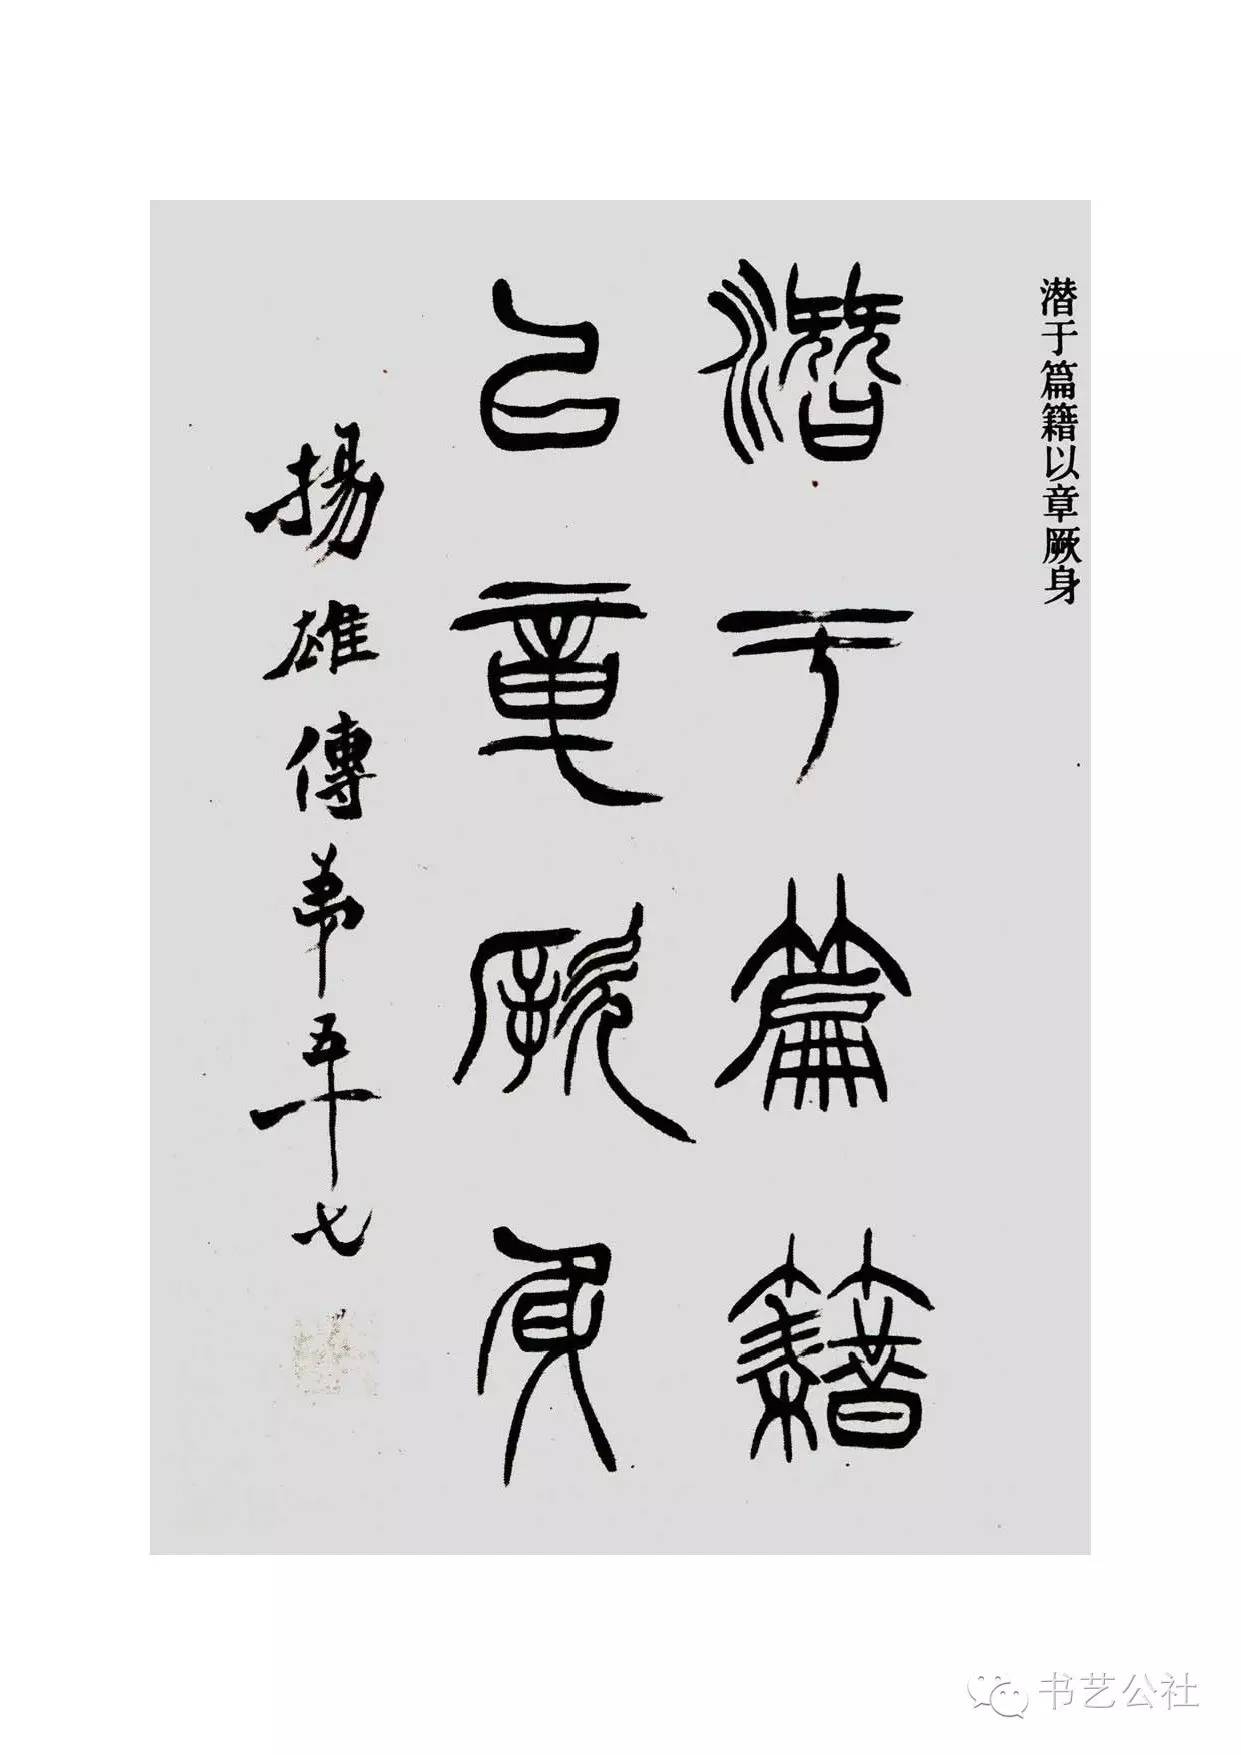 潜于篇籍以章厥身
潛于篇籍
㠯章厥身
揚雄傳弟五十七
书艺公社